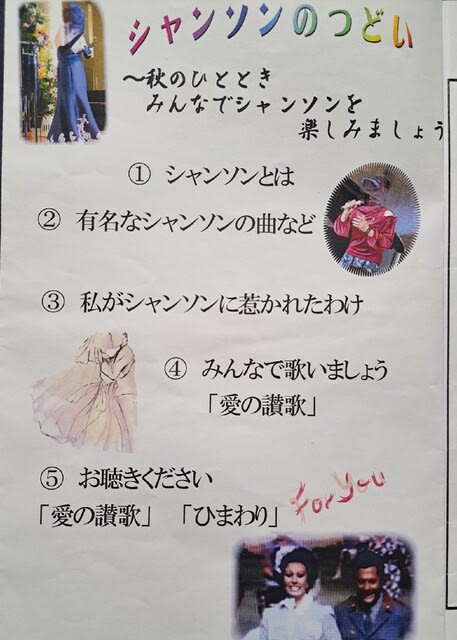 シャンソンのつどい
～秋のひととき
みんなでシャンソンを
楽しみましょう
① シャンソンとは
② 有名なシャンソンの曲など
③ 私がシャンソンに惹かれたわけ
④ みんなで歌いましょう
「愛の讃歌」
⑤ お聴きください
「愛の讃歌」 「ひまわり」 For You